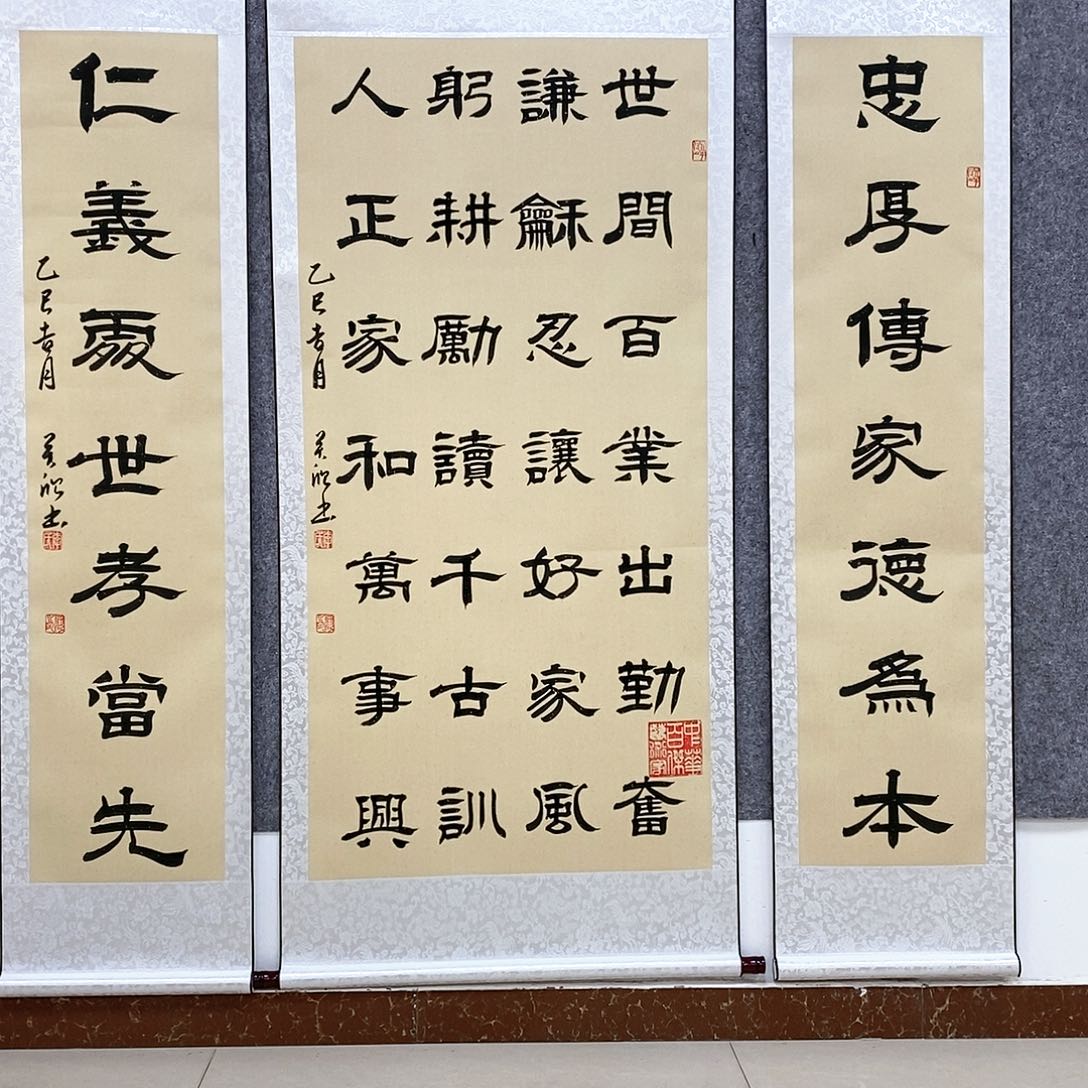 忠厚傳家德為本
世間百業出勤奮
謙龢忍讓好家風
躬耕勵讀千古訓
人正家和萬事興
乙巳吉月
仁義處世孝當先
乙巳吉月